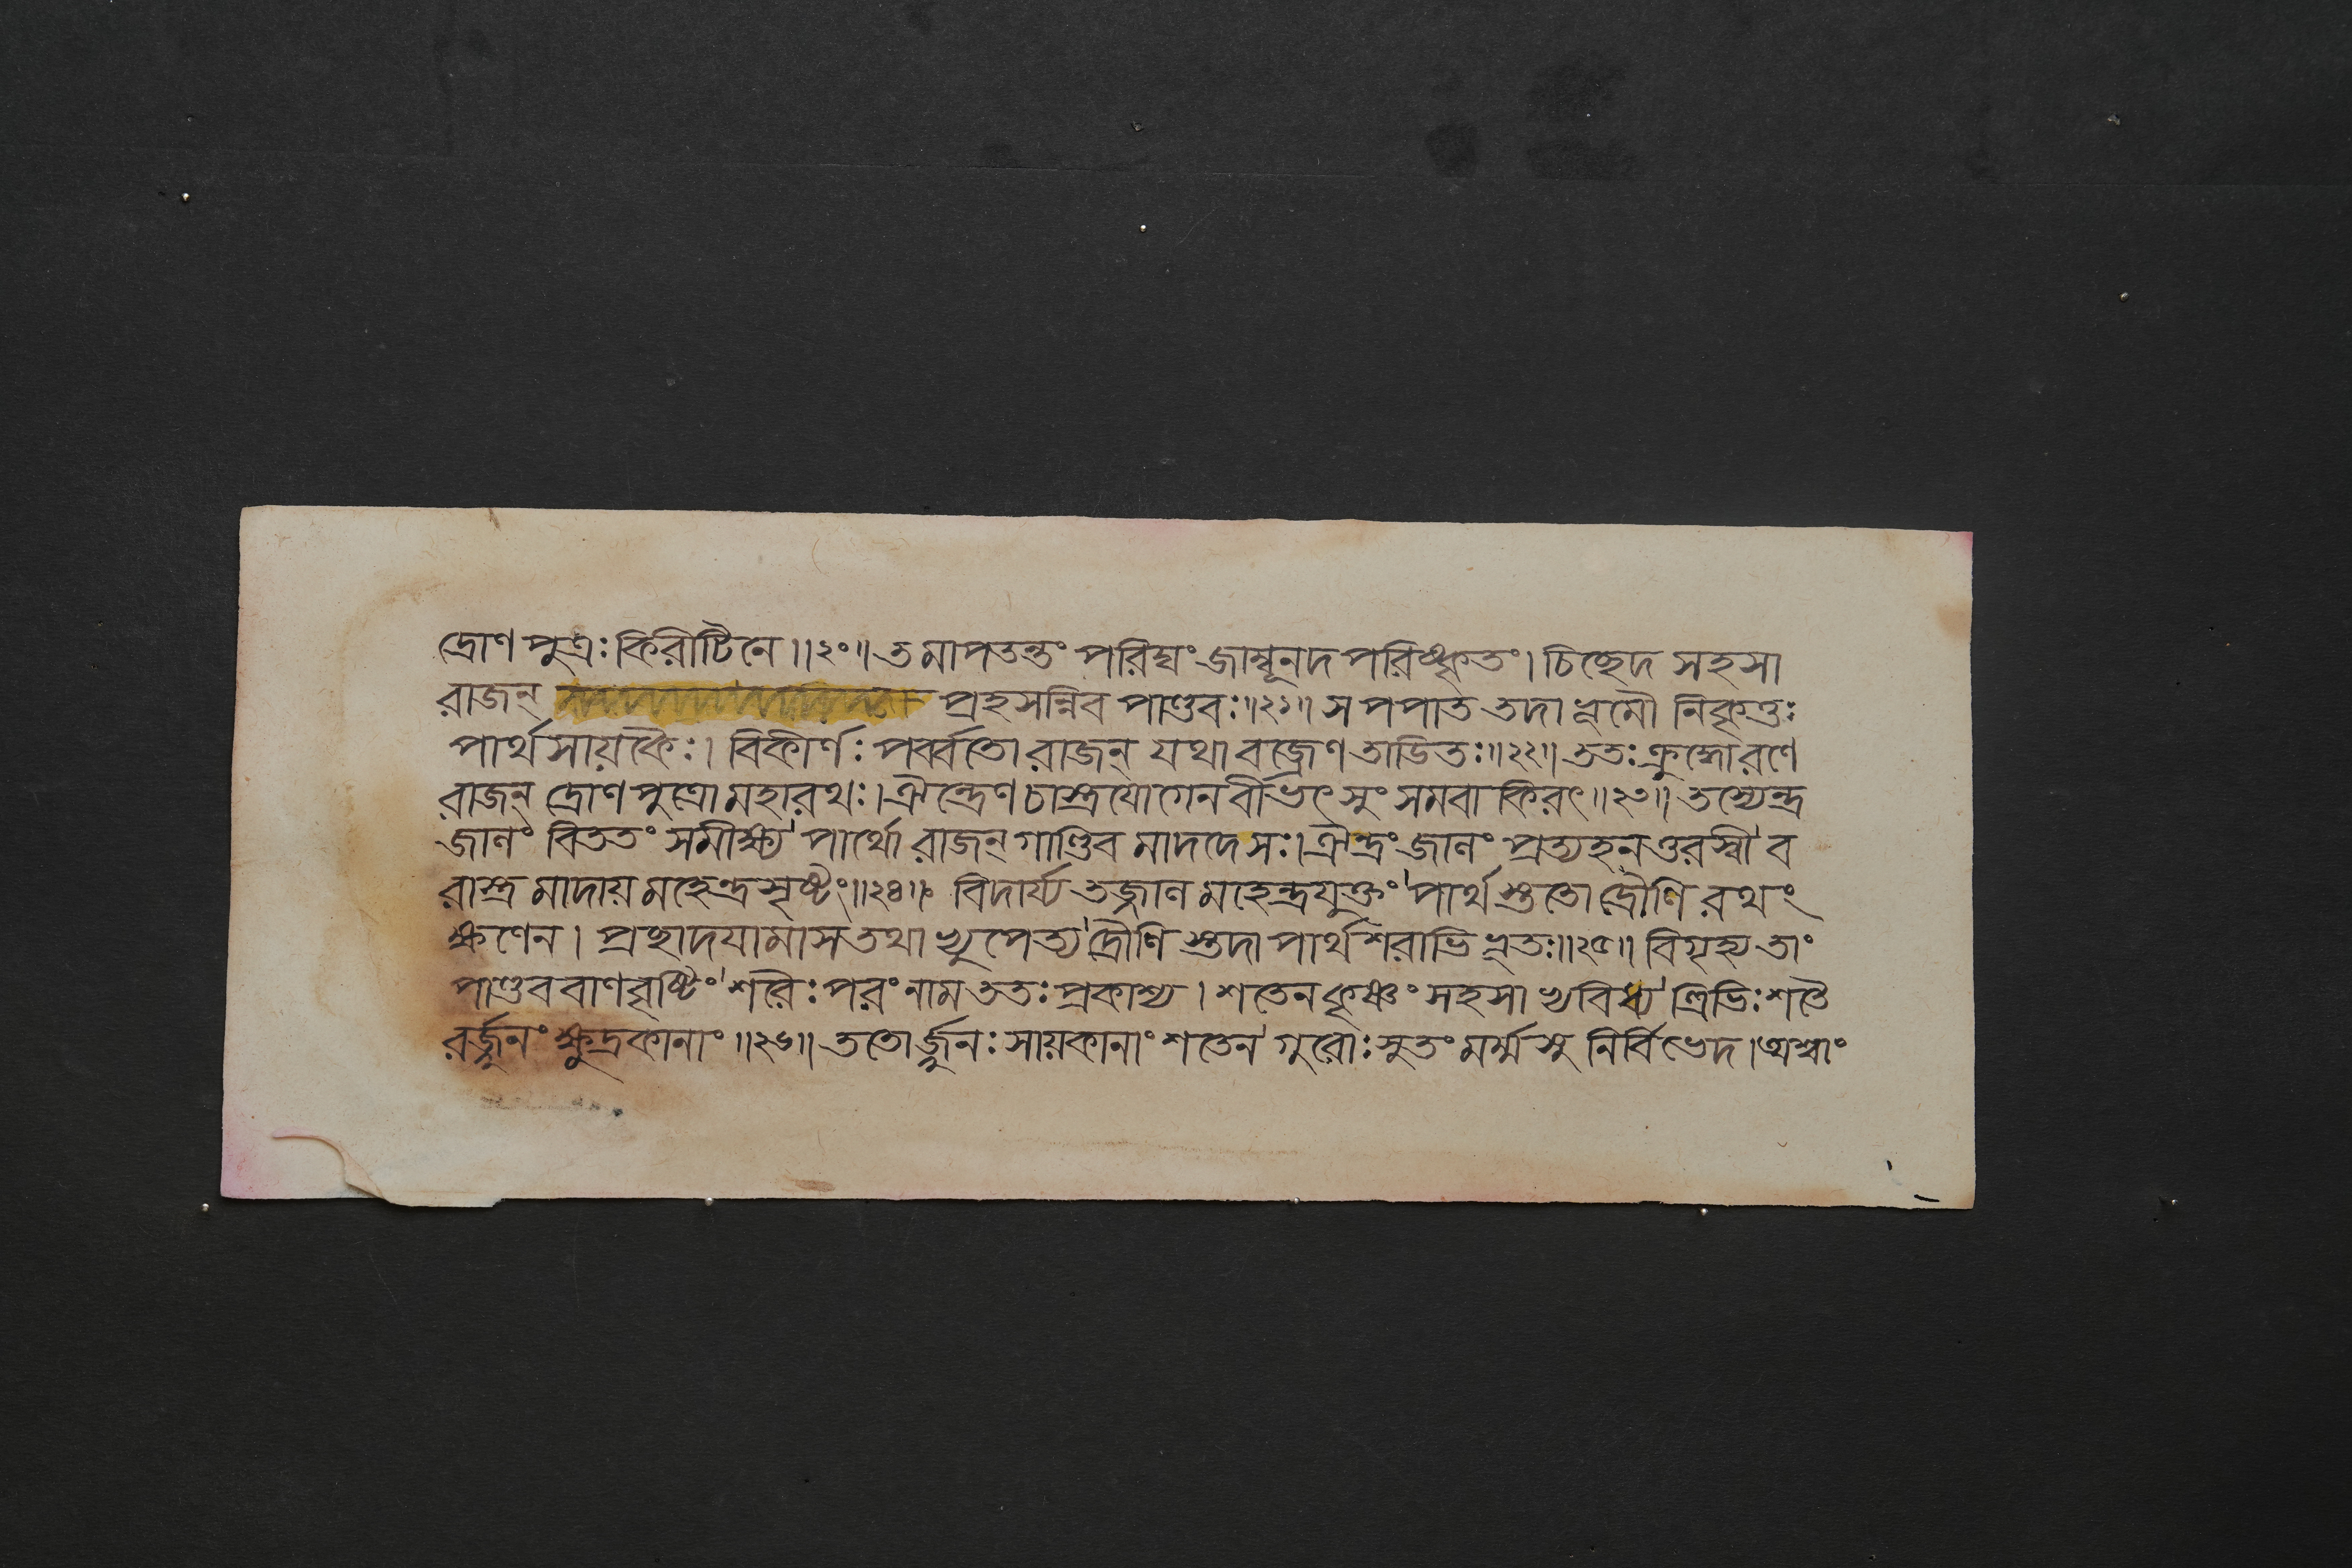 দ্রোণপুত্রঃ কিরীটিনে॥২০॥ তমাপতন্তং পরিঘং জাম্বূনদপরিষ্কৃতং। চিচ্ছেদ সহসা
রাজন্ প্রহসন্নিব পাণ্ডবঃ॥২১॥ স পপাত তদা ভূমৌ নিকৃত্তঃ
পার্থসায়কৈঃ। বিকীর্ণঃ পর্ব্বতো রাজন্ যথা বজ্রেণ তাডিতঃ॥২২॥ ততঃ ক্রুদ্ধো রণে
রাজন্ দ্রোণপুত্রো মহারথঃ। ঐন্দ্রেণ চাস্ত্রযোগেন বীভৎসুং সমবাকিরৎ॥২৩॥ তস্যেন্দ্র
জালং বিততং সমীক্ষ্য পার্থো রাজন্ গাণ্ডিবমাদদে সঃ। ঐন্দ্রং জালং প্রত্যহনৎ তরস্বী ব
রাস্ত্রমাদায় মহেন্দ্রসৃষ্টং॥২৪॥ বিদার্য্য তজ্জালমহেন্দ্রযুক্তং পার্থস্ততো দ্রৌণিরথং
ক্ষণেন। প্রচ্ছাদযামাস তথাভ্যুপেত্য দ্রৌণিস্তদা পার্থশরাভিভূতঃ॥২৫॥ বিগৃহ্য তাং
পাণ্ডববাণবৃষ্টিং শরৈঃ পরং নাম ততঃ প্রকাশ্য। শতেন কৃষ্ণং সহসাভ্যবিধ্য ত্ত্রিভিঃ শতৈ
রর্জ্জুনং ক্ষুদ্রকানাং॥২৬॥ ততোর্জ্জুনঃ সায়কানাং শতেন গুরোঃ সুতং মর্ম্মসু নির্বিভেদ। অশ্বাং